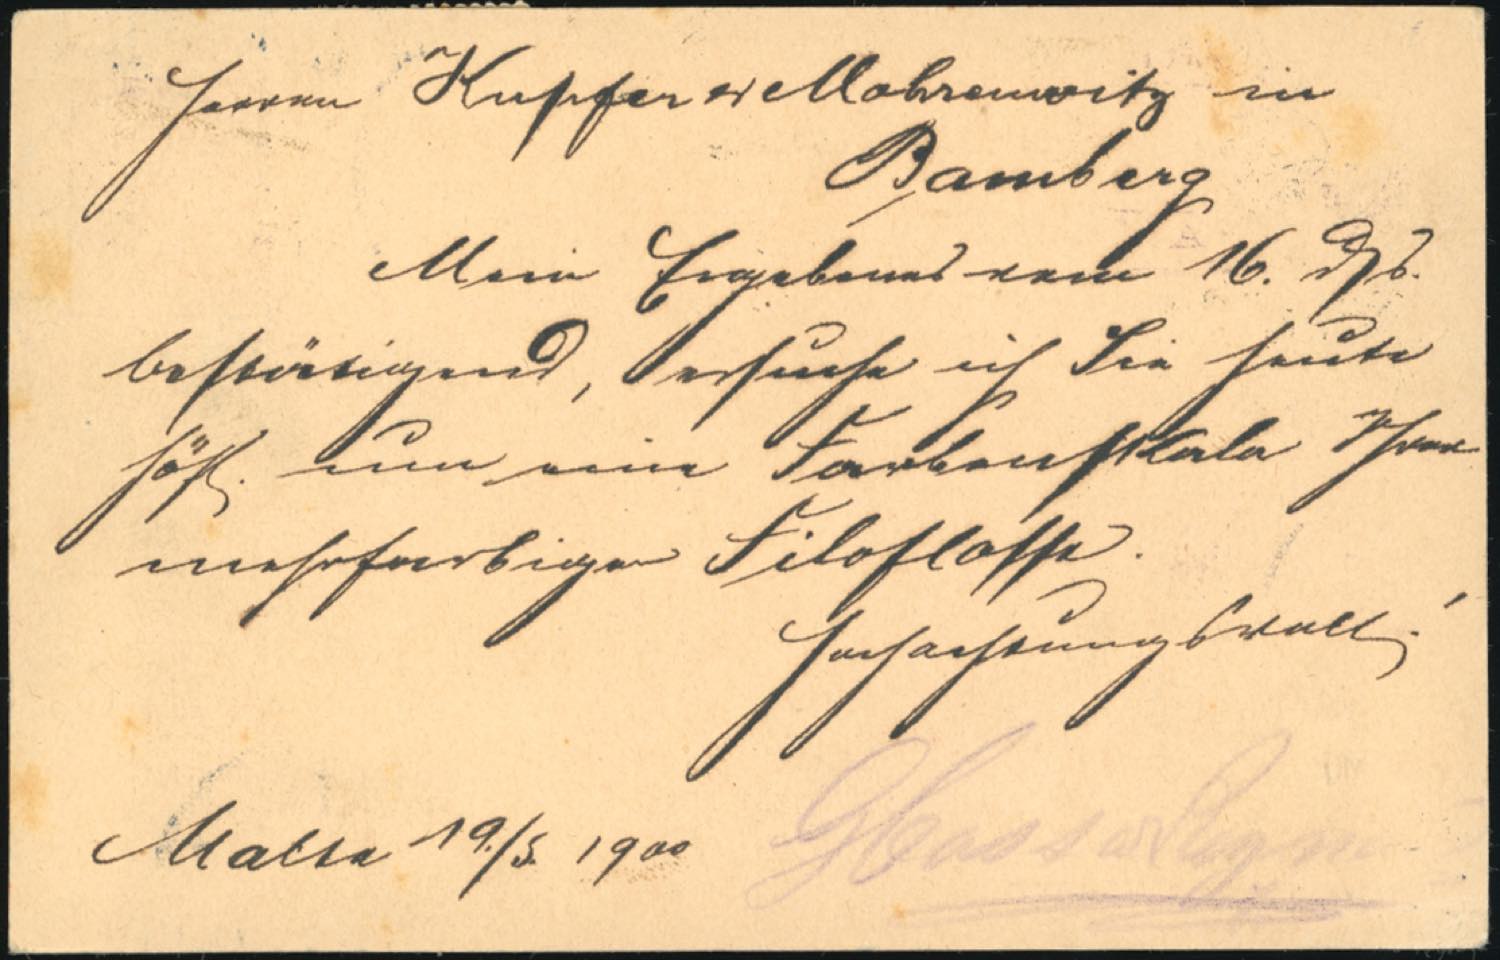 Herren Kupfer & Mohrenwitz in
Bamberg
Mein Ergebenes vom 16. dß.
bestätigend, ersuche ich Sie heute
höfl. um eine Farbenskala Ihrer
mehrfarbigen
Hochachtungsvoll!
Malta 19./5. 1900